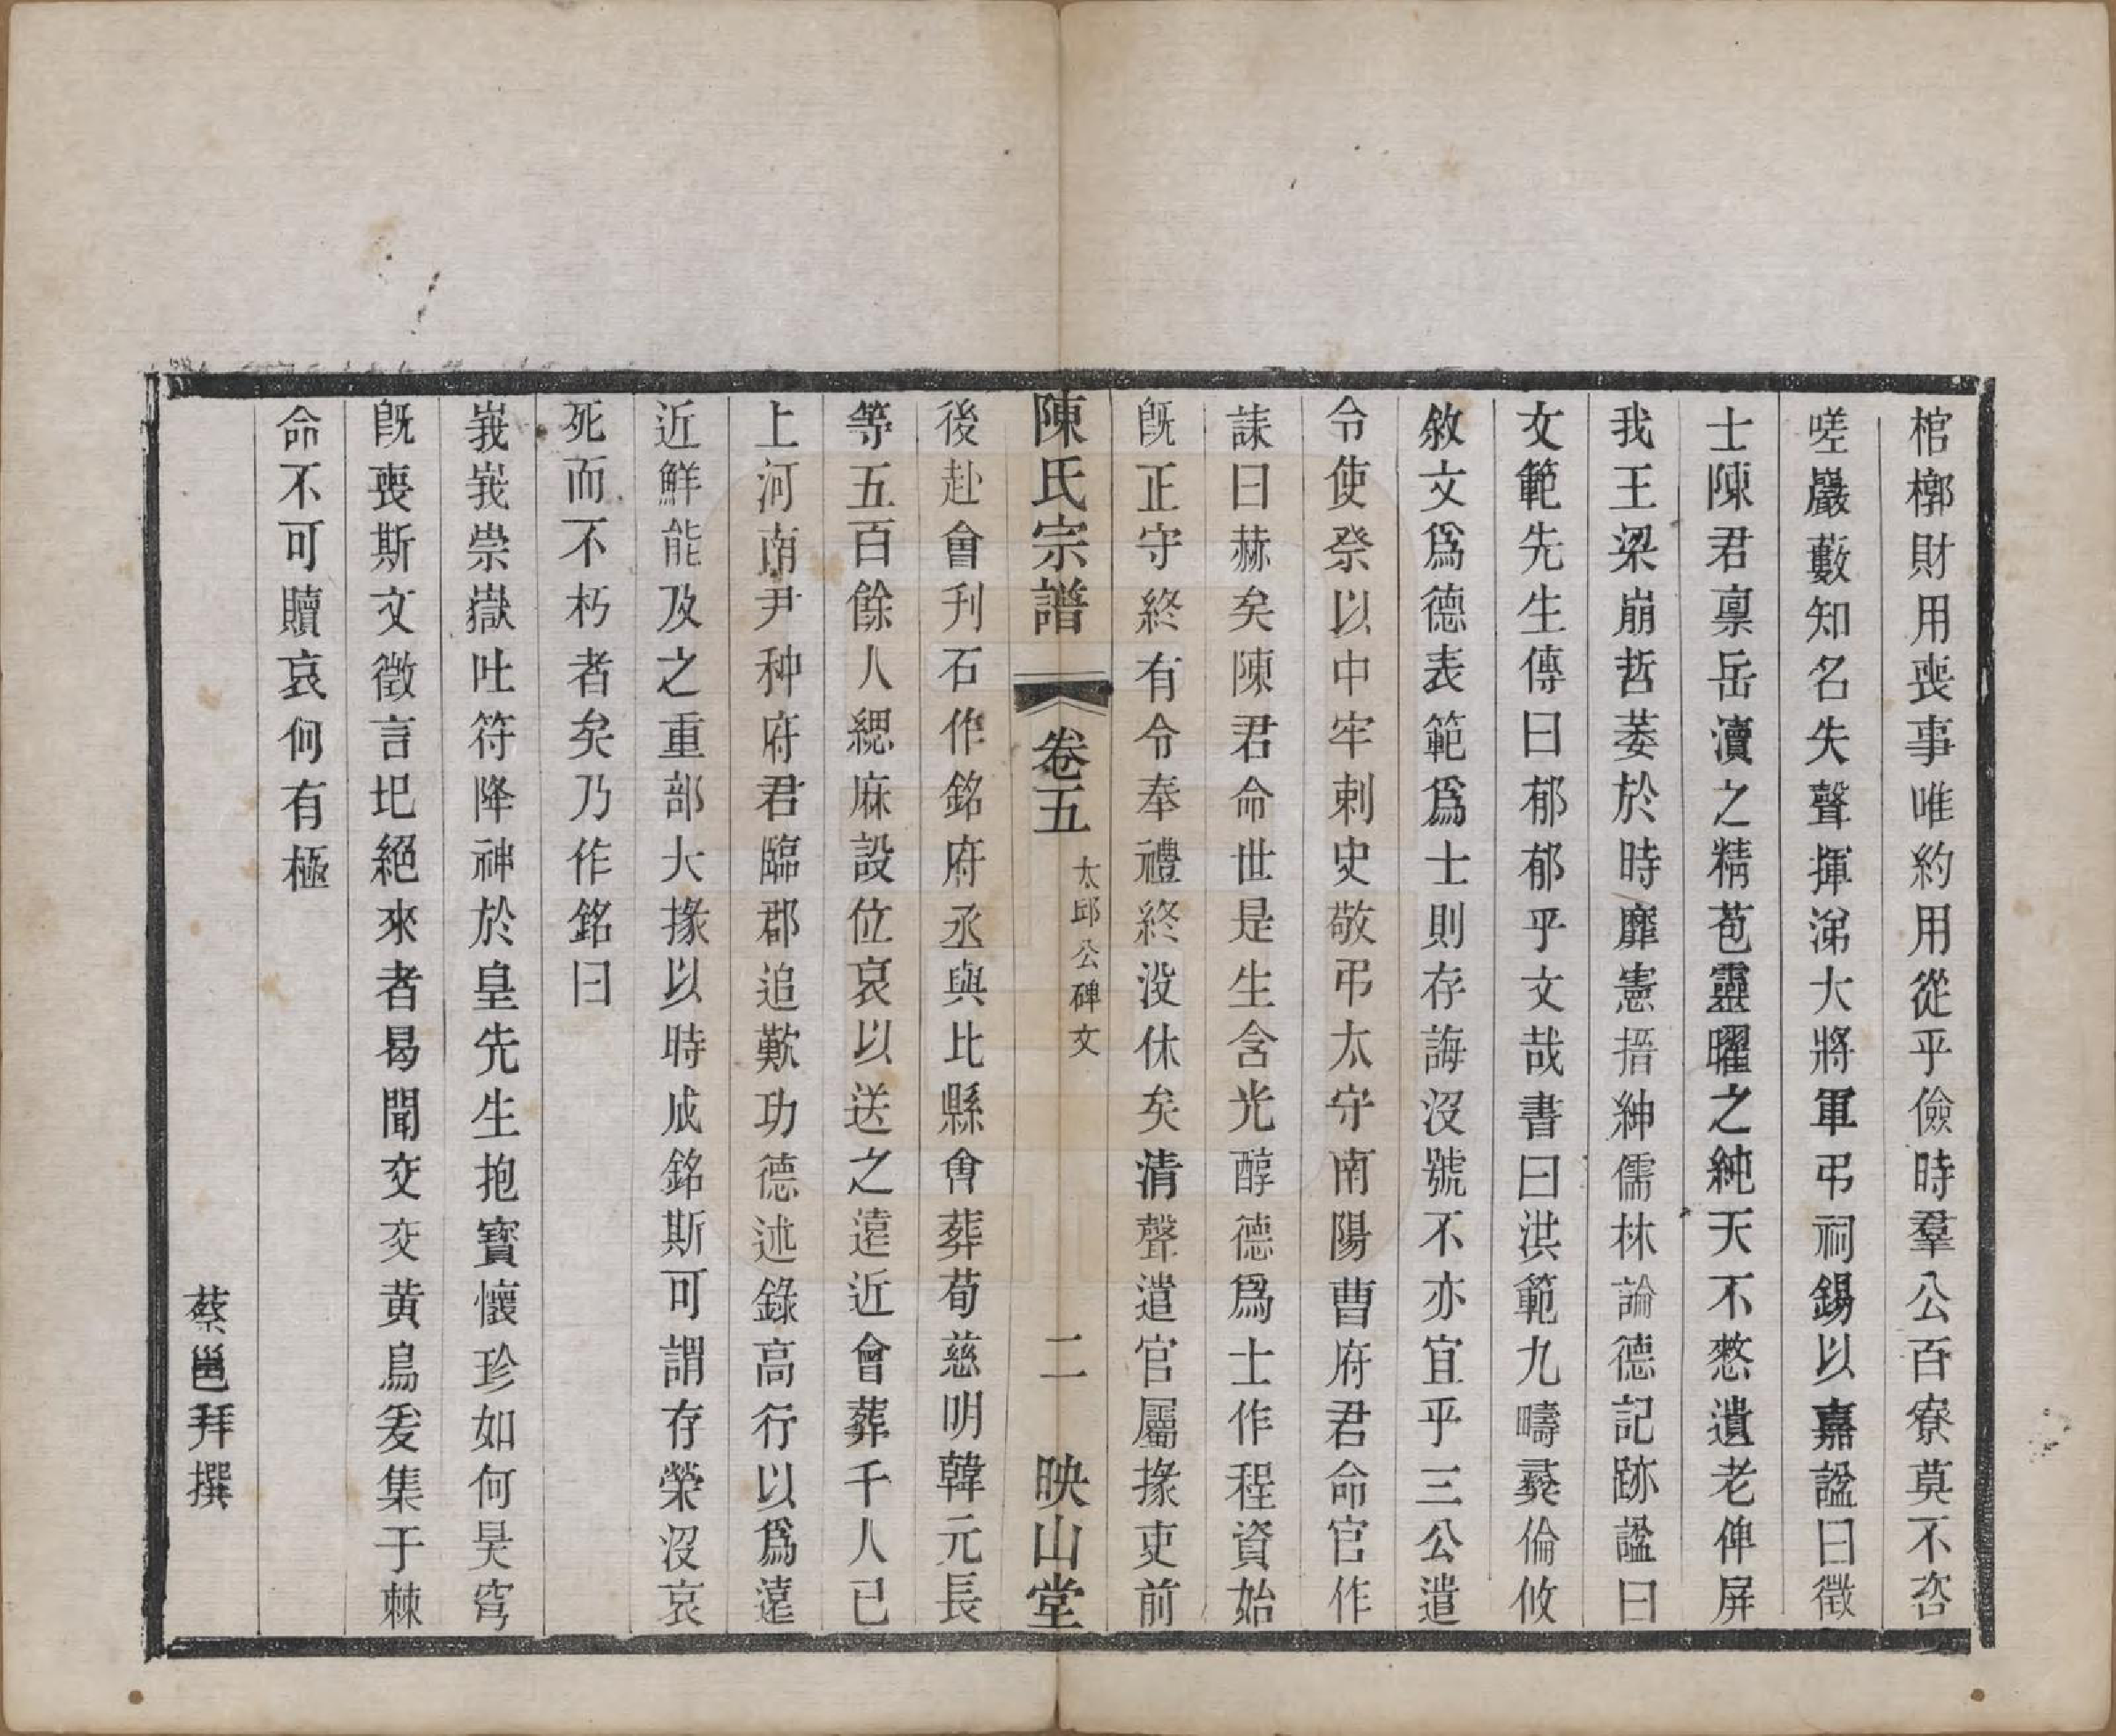 棺槨財用喪事唯約用從乎儉時羣公百寮莫不咨
嗟巖藪知名失聲揮涕大將軍弔祠錫以嘉謚曰徵
士陳君禀岳瀆之精苞靈曜之純天不憗遺老俾屏
我王梁崩哲萎於時靡憲搢紳儒林論德記跡謚曰
文範先生傳曰郁郁乎文哉書曰洪範九疇彝倫攸
敘文爲德表範爲士則存誨沒號不亦宜乎三公遣
令使祭以中牢刺史敬弔太守南陽曹府君命官作
誄曰赫矣陳君命世是生含光醇德爲士作程資始
旣正守終有令奉禮終没休矣清聲遣官屬掾吏前
陳氏宗譜
卷五
太邱公碑文
二
映山堂
後赴會刋石作銘府丞與比縣會葬荀慈明韓元長
等五百餘人緦麻設位哀以送之遠近會葬千人已
上河南尹种府君臨郡追歎功德述錄高行以爲遠
近鮮能及之重部大掾以時成銘斯可謂存榮沒哀
死而不朽者矣乃作銘曰
峩峩崇嶽吐符降神於皇先生抱寳懷珍如何昊穹
旣喪斯文徵言圯絕來者曷聞交交黃鳥爰集于棘
命不可贖哀何有極
蔡邕拜撰